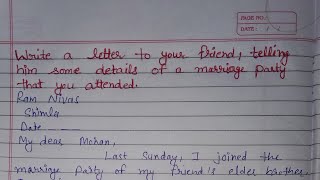 PAGE NO.:
DATE:
Write a letter to your friend, telling
him some details of a marriage party
that you attended.
Ram Nivas
Shimla
Date
My dear Mohan,
Last Sunday, I joined the
marriage party of my friend's elder brother.